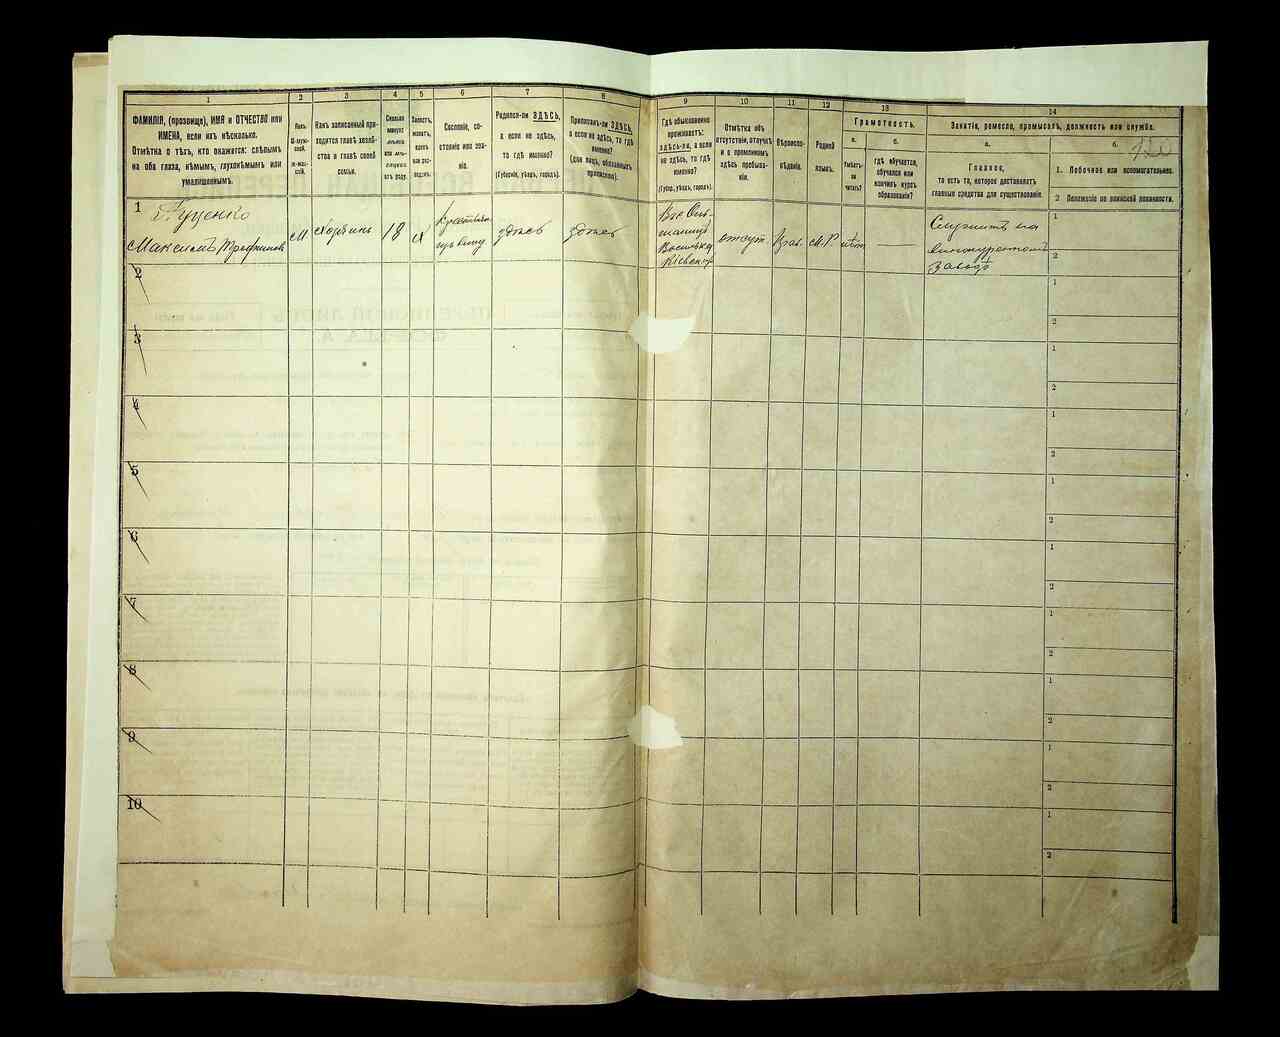 1
2
3
4
5
6
7
8
9
10
11
12
13
14
ФАМИЛІЯ, (прозвище), ИМЯ и ОТЧЕСТВО или
ИМЕНА, если ихъ нѣсколько.
Отмѣтка о тѣхъ, кто окажется: слѣпымъ
на оба глаза, нѣмымъ, глухонѣмымъ или
умалишеннымъ.
Какъ записанный при-
ходится главѣ хозяй-
ства и главѣ своей
семьи.
Сословіе, со-
стояніе или зва-
ніе.
Родился-ли ЗДѢСЬ,
а если не здѣсь,
то гдѣ именно?
(Губернія, уѣздъ, городъ).
Приписанъ-ли ЗДѢСЬ,
а если не здѣсь, то гдѣ
именно?
(для лицъ, обязанныхъ
припиской).
Гдѣ обыкновенно
проживаетъ:
здѣсь-ли, а если
не здѣсь, то гдѣ
именно?
(Губер., уѣздъ, городъ).
Отмѣтка объ
отсутствіи, отлучкѣ
и о временномъ
здѣсь пребыва-
ніи.
Вѣроиспо-
вѣданіе.
Родной
языкъ.
Грамотность.
а.
Умѣетъ-
ли
читать?
б.
гдѣ обучается,
обучался или
кончилъ курсъ
образованія?
Занятіе, ремесло, промыселъ, должность или служба.
а.
Главное,
то есть то, которое доставляетъ
главныя средства для существованія.
б.
120
1. Побочное или вспомогательное.
2 Положеніе по воинской повинности.
1
Максимъ
М
18
Х
здѣсь
здѣсь
отсут.
Прав.
М.Р.
Служитъ на
Заводѣ
1
2
2
1
2
3
1
2
4
1
2
5
1
2
6
1
2
7
1
2
8
1
2
9
1
2
10
1
2